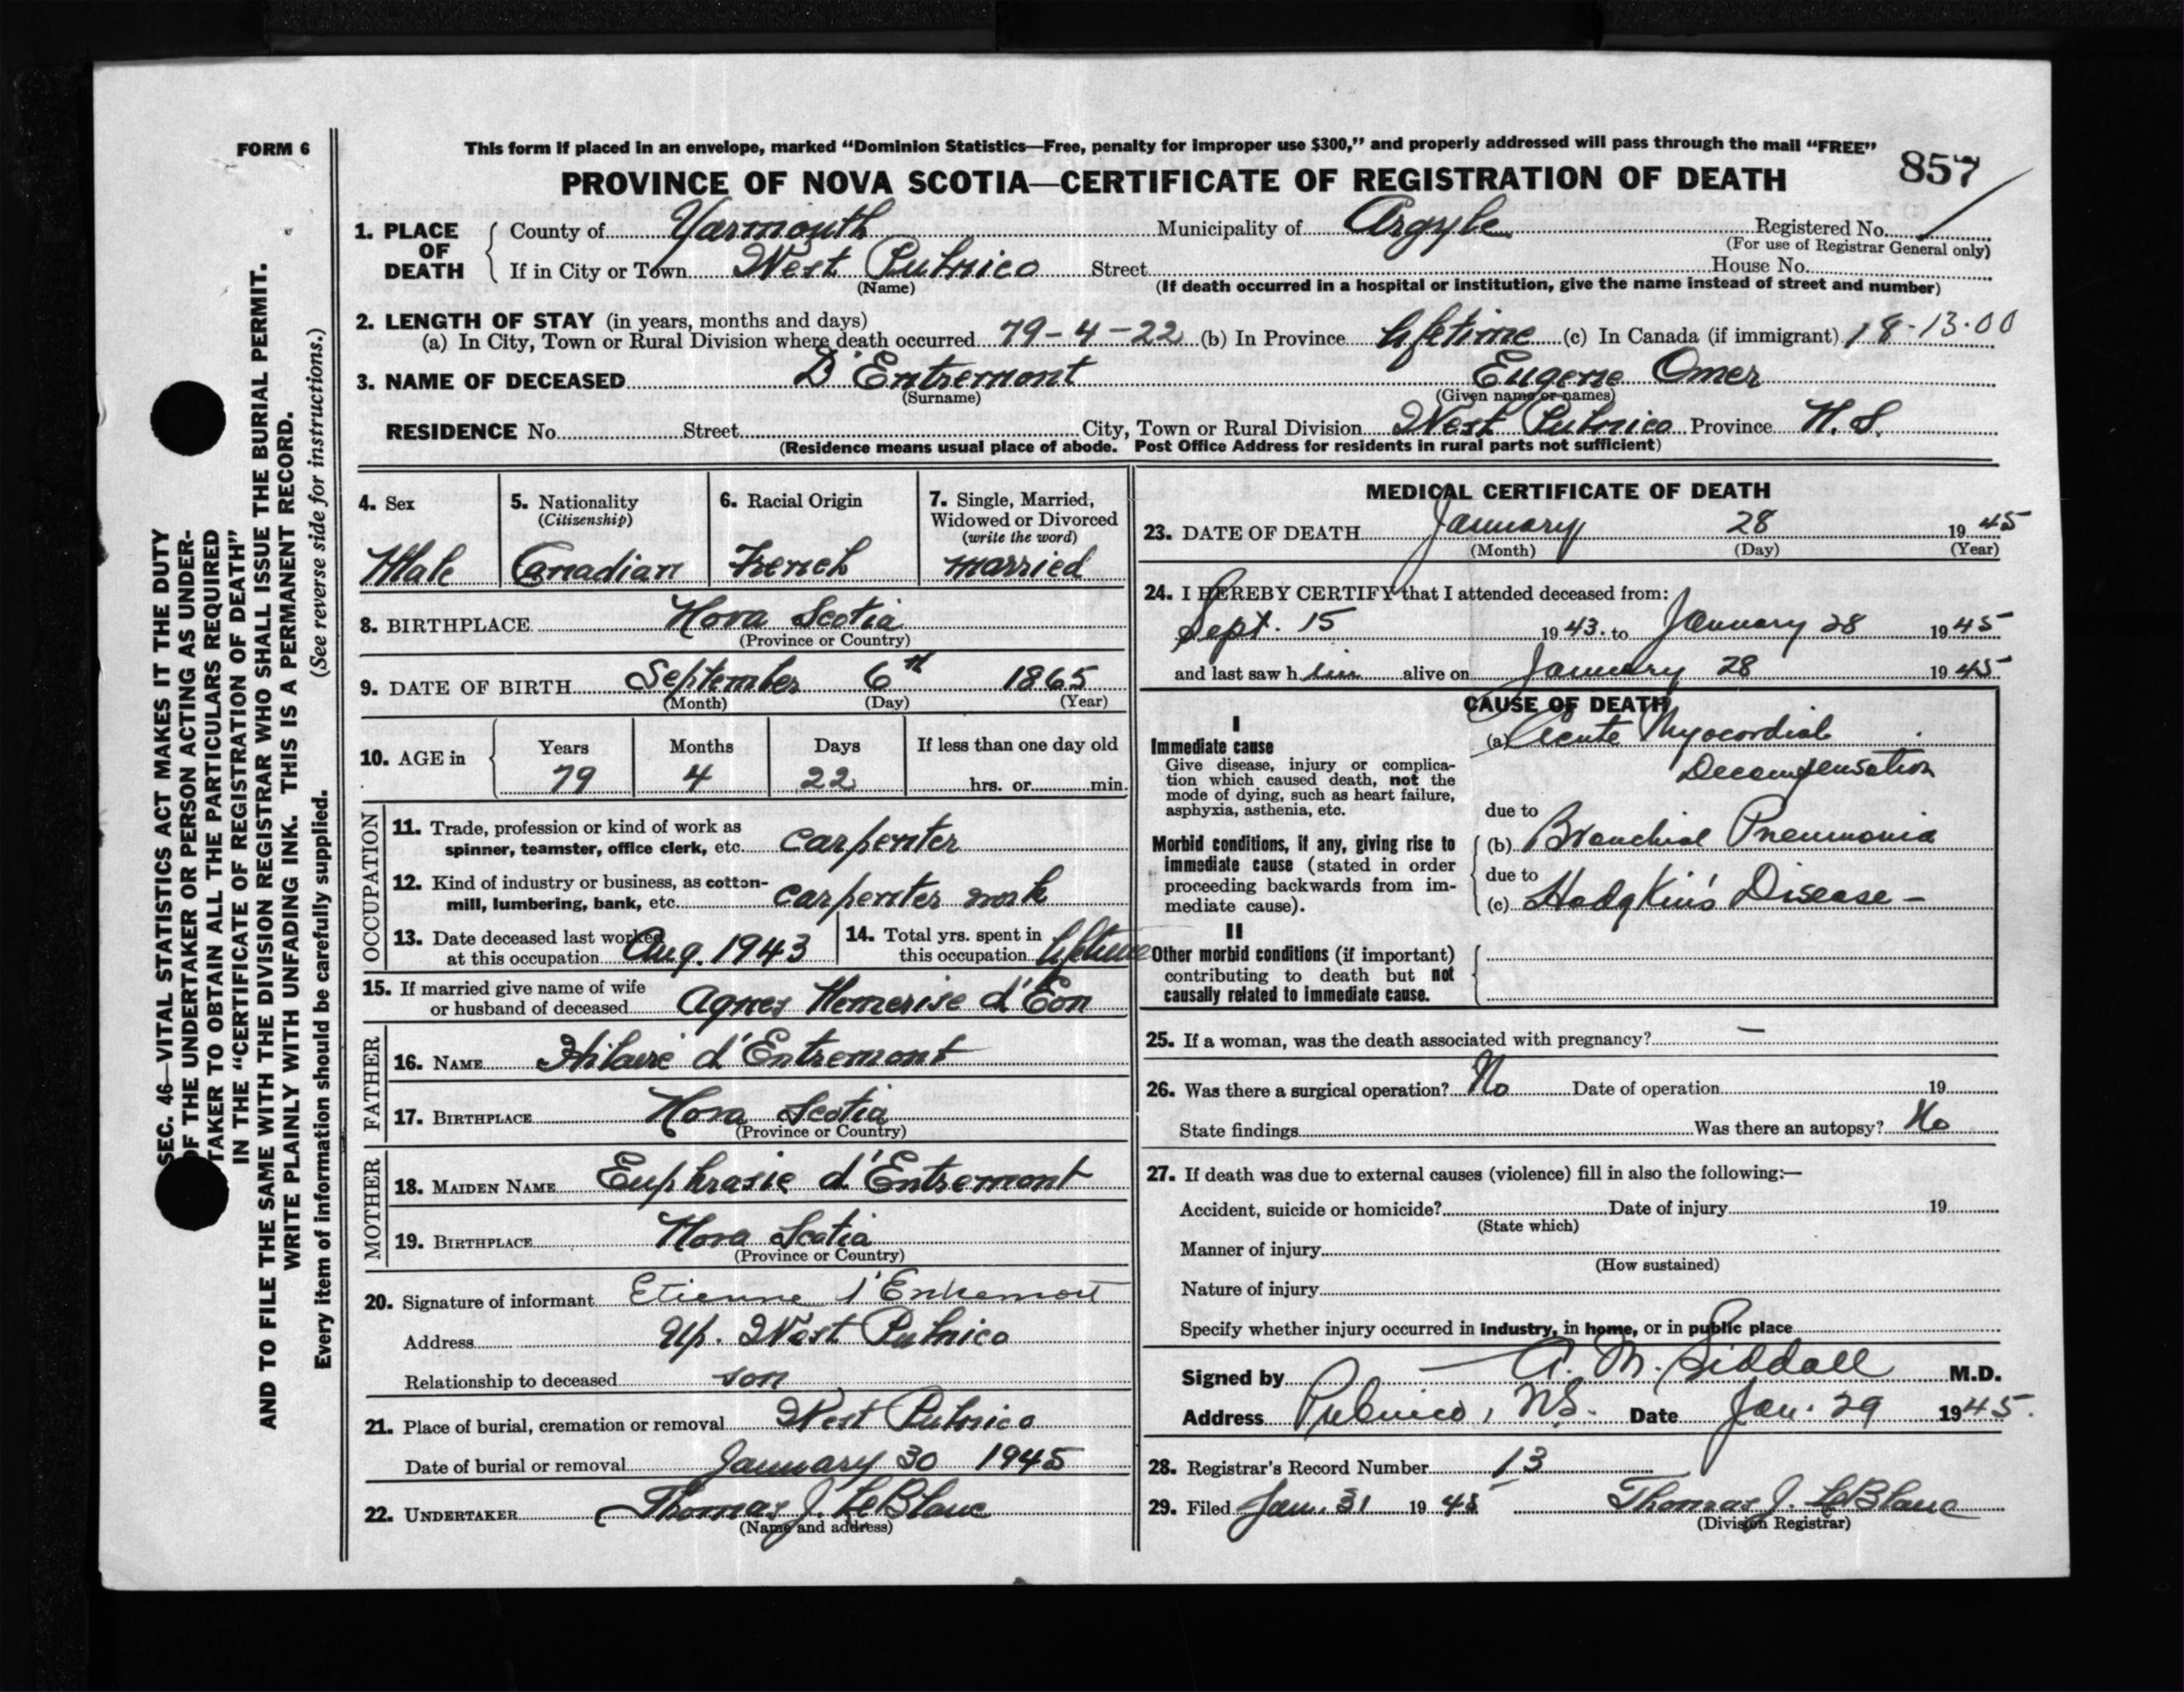 FORM 6
This form if placed in an envelope, marked “Dominion Statistics—Free, penalty for improper use $300,” and properly addressed will pass through the mail “FREE”
PROVINCE OF NOVA SCOTIA—CERTIFICATE OF REGISTRATION OF DEATH
857
1. PLACE OF DEATH County of Yarmouth Municipality of Argyle Registered No.
(For use of Registrar General only)
If in City or Town West Pubnico Street House No.
(Name) (If death occurred in a hospital or institution, give the name instead of street and number)
2. LENGTH OF STAY (in years, months and days)
(a) In City, Town or Rural Division where death occurred 79-4-22 (b) In Province lifetime (c) In Canada (if immigrant) 18-13·00
3. NAME OF DECEASED D'Entremont Eugene Omer
(Surname) (Given name or names)
RESIDENCE No. Street City, Town or Rural Division West Pubnico Province N.S.
(Residence means usual place of abode. Post Office Address for residents in rural parts not sufficient)
4. Sex
Male
5. Nationality
(Citizenship)
Canadian
6. Racial Origin
French
7. Single, Married,
Widowed or Divorced
(write the word)
married
8. BIRTHPLACE Nova Scotia
(Province or Country)
9. DATE OF BIRTH September 6th 1865
(Month) (Day) (Year)
10. AGE in Years Months Days If less than one day old
79 4 22 hrs. or min.
OCCUPATION
11. Trade, profession or kind of work as
spinner, teamster, office clerk, etc. carpenter
12. Kind of industry or business, as cotton-
mill, lumbering, bank, etc. carpenter work
13. Date deceased last worked
at this occupation Aug. 1943
14. Total yrs. spent in
this occupation lifetime
15. If married give name of wife
or husband of deceased Agnes Nemerise d'Eon
FATHER
16. NAME Hilaire d'Entremont
17. BIRTHPLACE Nova Scotia
(Province or Country)
MOTHER
18. MAIDEN NAME Euphrasie d'Entremont
19. BIRTHPLACE Nova Scotia
(Province or Country)
20. Signature of informant Etienne d'Entremont
Address Up. West Pubnico
Relationship to deceased son
21. Place of burial, cremation or removal West Pubnico
Date of burial or removal January 30 1945
22. UNDERTAKER Thomas J. LeBlanc
(Name and address)
MEDICAL CERTIFICATE OF DEATH
23. DATE OF DEATH January 28 1945
(Month) (Day) (Year)
24. I HEREBY CERTIFY that I attended deceased from:
Sept. 15 1943. to January 28 1945
and last saw him alive on January 28 1945
CAUSE OF DEATH
I
Immediate cause
Give disease, injury or complica-
tion which caused death, not the
mode of dying, such as heart failure,
asphyxia, asthenia, etc.
(a) Acute Myocordial
Decompensation
due to
Morbid conditions, if any, giving rise to
immediate cause (stated in order
proceeding backwards from im-
mediate cause).
(b) Bronchial Pneumonia
due to
(c) Hodgkin's Disease -
II
Other morbid conditions (if important)
contributing to death but not
causally related to immediate cause.
25. If a woman, was the death associated with pregnancy? —
26. Was there a surgical operation? No Date of operation 19
State findings Was there an autopsy? No
27. If death was due to external causes (violence) fill in also the following:—
Accident, suicide or homicide? Date of injury 19
(State which)
Manner of injury
(How sustained)
Nature of injury
Specify whether injury occurred in Industry, in home, or in public place
Signed by A. M. Siddall M.D.
Address Pubnico, N.S. Date Jan. 29 1945.
28. Registrar's Record Number 13
29. Filed Jan. 31 1945 Thomas J. LeBlanc
(Division Registrar)
SEC. 46—VITAL STATISTICS ACT MAKES IT THE DUTY
OF THE UNDERTAKER OR PERSON ACTING AS UNDER-
TAKER TO OBTAIN ALL THE PARTICULARS REQUIRED
IN THE “CERTIFICATE OF REGISTRATION OF DEATH”
AND TO FILE THE SAME WITH THE DIVISION REGISTRAR WHO SHALL ISSUE THE BURIAL PERMIT.
WRITE PLAINLY WITH UNFADING INK. THIS IS A PERMANENT RECORD.
Every item of information should be carefully supplied. (See reverse side for instructions.)